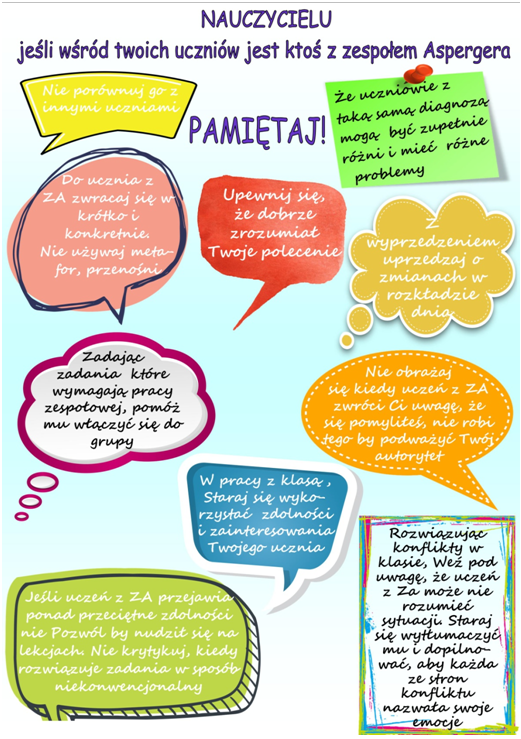 NAUCZYCIELU
jeśli wśród twoich uczniów jest ktoś z zespołem Aspergera
Nie porównuj go z
innymi uczniami
PAMIĘTAJ!
Że uczniowie z
taką samą diagnozą
mogą być zupełnie
różni i mieć różne
problemy
Do ucznia z
ZA zwracaj się w
krótko i
konkretnie.
Nie używaj meta-
for, przenośni
Upewnij się,
że dobrze
zrozumiał
Twoje polecenie
Z
wyprzedzeniem
uprzedzaj o
zmianach w
rozkładzie
dnia.
Zadając
zadania które
wymagają pracy
zespołowej, pomóż
mu włączyć się do
grupy
Nie obrażaj
się kiedy uczeń z ZA
zwróci Ci uwagę, że
się pomyliłeś, nie robi
tego by podważyć Twój
autorytet
W pracy z klasą ,
Staraj się wyko-
rzystać zdolności
i zainteresowania
Twojego ucznia
Rozwiązując
konflikty w
klasie, Weź pod
uwagę, że uczeń
z Za może nie
rozumieć
sytuacji. Staraj
się wytłumaczyć
mu i dopilno-
wać, aby każda
ze stron
konfliktu
nazwała swoje
emocje
Jeśli uczeń z ZA przejawia
ponad przeciętne zdolności
nie Pozwól by nudził się na
lekcjach. Nie krytykuj, kiedy
rozwiązuje zadania w sposób
niekonwencjonalny